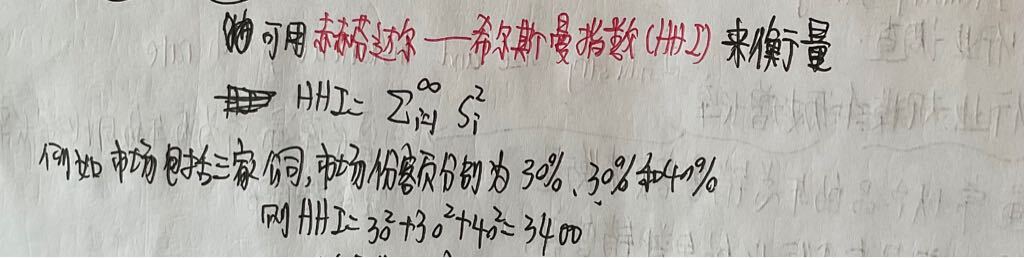 可用赫芬达尔——希尔斯曼指数(HHI)来衡量
HHI= ∑_{i=1}^{∞} S_i^2
例如市场包括三家公司,市场份额分别为30%、30%和40%
则HHI=30²+30²+40²=3400